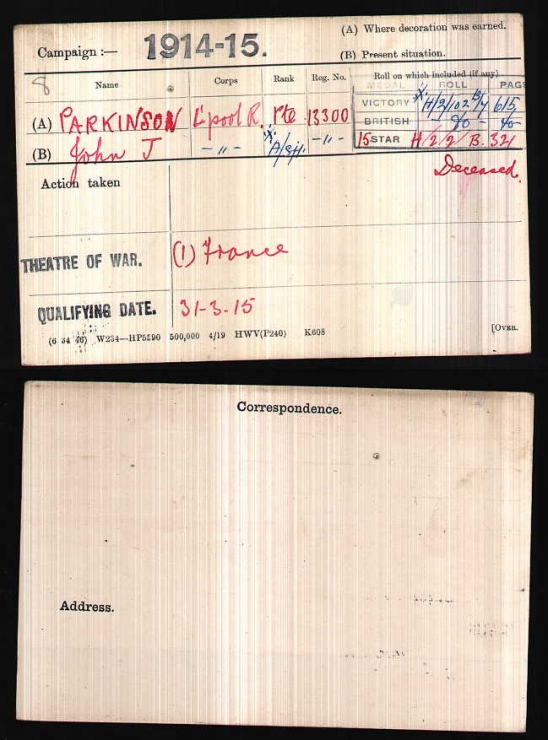 (A) Where decoration was earned.
Campaign :— 1914-15.
(B) Present situation.
8 Name Corps Rank Reg. No. Roll on which included (if any)
MEDAL ROLL PAGE
(A) PARKINSON L'pool R. Pte 13300 VICTORY H/2/102 B 615
BRITISH - do - do
(B) John J —"— A/Sjt. —"— 15 STAR H/2/2/B. 321
Deceased.
Action taken
THEATRE OF WAR. (1) France
QUALIFYING DATE. 31-3-15
(6 34 46) W234—HP5590 500,000 4/19 HWV(P240) K608 [Over.
Correspondence.
Address.